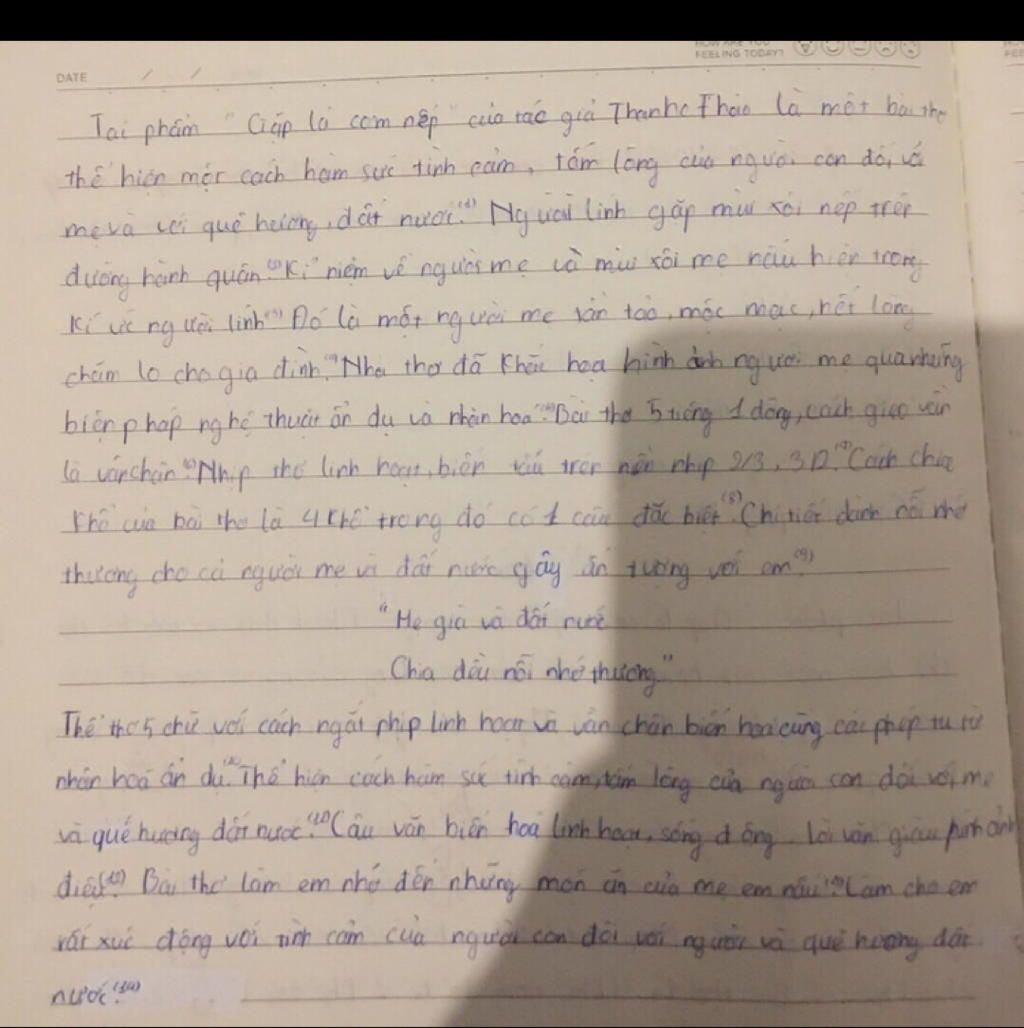 HOW ARE YOU
FEELING TODAY?
DATE / /
Tai phẩm "Gặp lá cơm nếp" của tác giả Thanh Thảo là một bài thơ
thể hiện một cách hàm súc tình cảm, tấm lòng của người con đối với
mẹ và với quê hương, đất nước.(1) Người lính gặp mùi xôi nếp trên
đường hành quân.(2) Kỉ niệm về người mẹ và mùi xôi mẹ nấu hiện trong
kí ức người lính.(3) Đó là một người mẹ tần tảo, mộc mạc, hết lòng
chăm lo cho gia đình.(4) Nhà thơ đã khắc họa hình ảnh người mẹ qua những
biện pháp nghệ thuật ẩn dụ và nhân hoá.(5) Bài thơ 5 tiếng 1 dòng, cách gieo vần
là vần chân.(6) Nhịp thơ linh hoạt, biến tấu trên nền nhịp 2/3, 3/2.(7) Cách chia
khổ của bài thơ là 4 khổ trong đó có 1 câu đặc biệt.(8) Chi tiết dành nỗi nhớ
thương cho cả người mẹ và đất nước gây ấn tượng với em.(9)
"Mẹ già và đất nước
Chia đều nỗi nhớ thương"
Thể thơ 5 chữ với cách ngắt nhịp linh hoạt và vần chân biến hoá cùng các phép tu từ
nhân hoá ẩn dụ. Thể hiện cách hàm súc tình cảm, tấm lòng của người con đối với mẹ
và quê hương đất nước. Câu văn biến hoá linh hoạt, sống động. Lời văn giàu hình ảnh
điệu. Bài thơ làm em nhớ đến những món ăn của mẹ em nấu. Làm cho em
rất xúc động với tình cảm của người con đối với người và quê hương đất
nước.